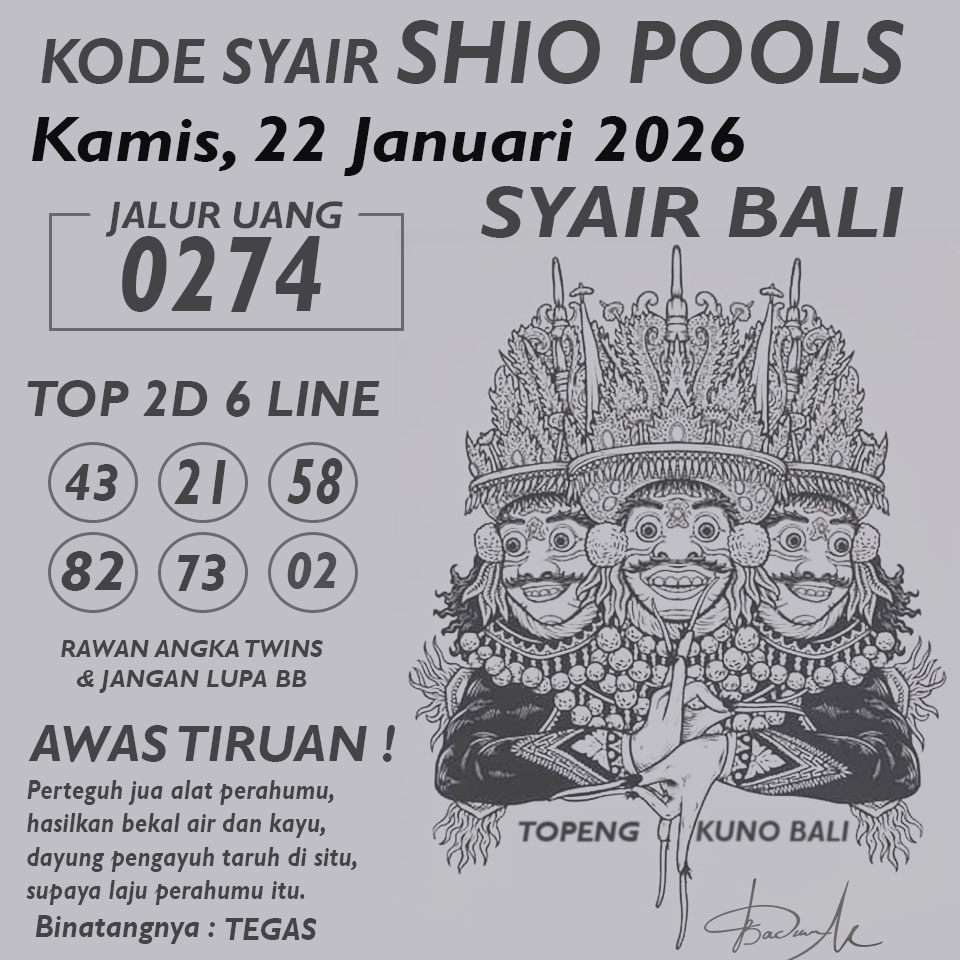 KODE SYAIR SHIO POOLS
Kamis, 22 Januari 2026
SYAIR BALI
JALUR UANG
0274
TOP 2D 6 LINE
43 21 58
82 73 02
RAWAN ANGKA TWINS
& JANGAN LUPA BB
AWAS TIRUAN !
Perteguh jua alat perahumu,
hasilkan bekal air dan kayu,
dayung pengayuh taruh di situ,
supaya laju perahumu itu.
Binatangnya : TEGAS
TOPENG KUNO BALI